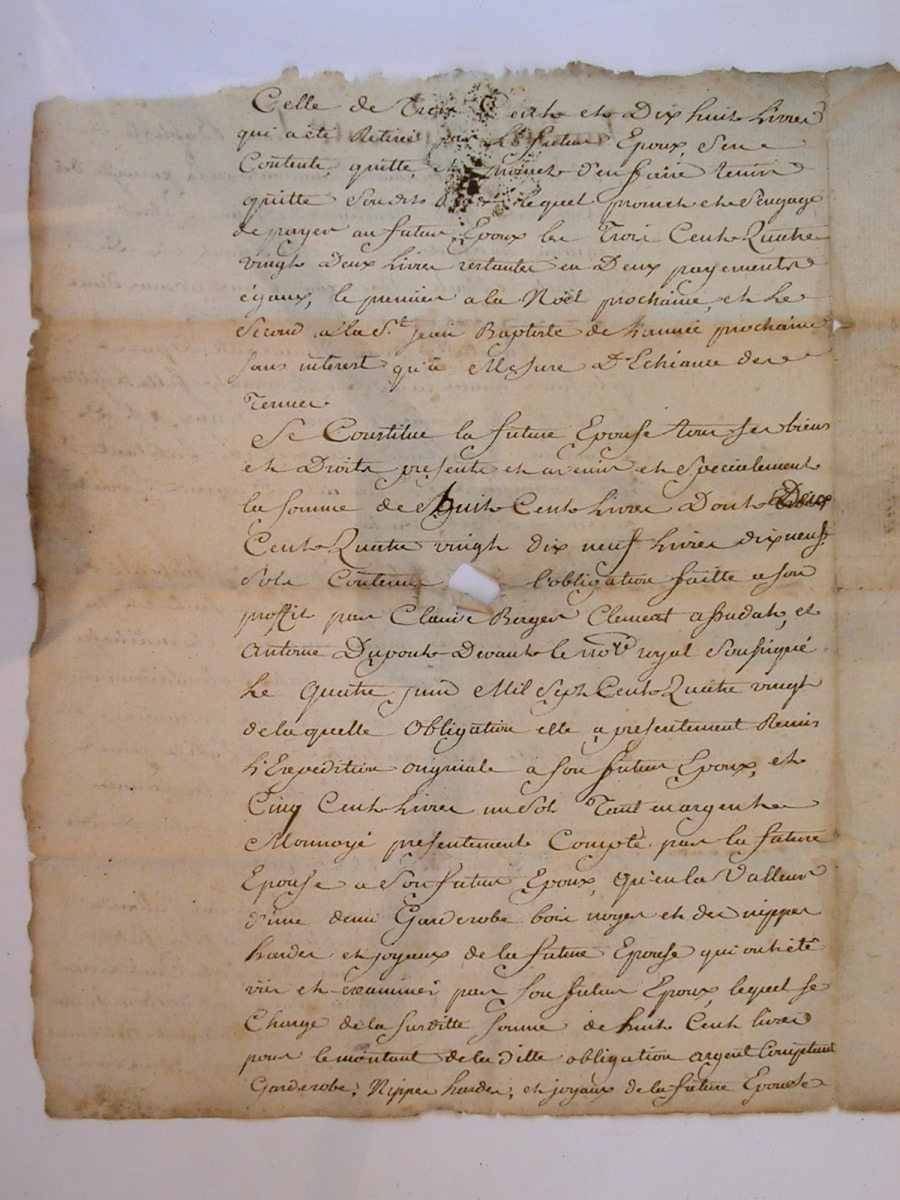 Celle de Trois Cent et Dix huit Livres
qui a été Retirée par Le futur Epoux, S'en
Contente, quitte, et promet d'en faire tenir
quitte Sondit lequel promet et S'engage
de payer au futur Epoux les Trois Cent Quatre
vingt Deux Livres restantes en Deux payements
égaux; le premier a la Noël prochaine, et Le
Second a la S.t jean Baptiste de L'année prochaine
sans interest qu'a Mesure D'Echéance des
Termes
Se Constitue la future Epouse tous ses biens
et Droits presents et avenir et Specialement
la somme de huit Cent Livres Dont Deux
Cent Quatre vingt dix neuf Livres dix neuf
Sols Contenus l'obligation faitte a son
proffit par Claude Berger Clement et
Antoine Dupont Devant le no.re royal Soussigné
Le Quatre juin Mil Sept Cent Quatre vingt
de laquelle Obligation elle a presentement Remis
L'Expedition originale a son futur Epoux, et
Cinq Cent Livres un Sol Tant en argent
Monnoyé presentement Compté par la future
Epouse a Son futur Epoux, qu'en la Valleur
d'une demi Garderobe bois noyer et des nippes
hardes et joyaux de la future Epouse qui ont été
vus et examinés par son futur Epoux, lequel se
Charge de la susditte somme de huit Cent livres
pour le montant de la ditte obligation argent Comptant
Garderobe; Nippes hardes; et joyaux de la future Epouse